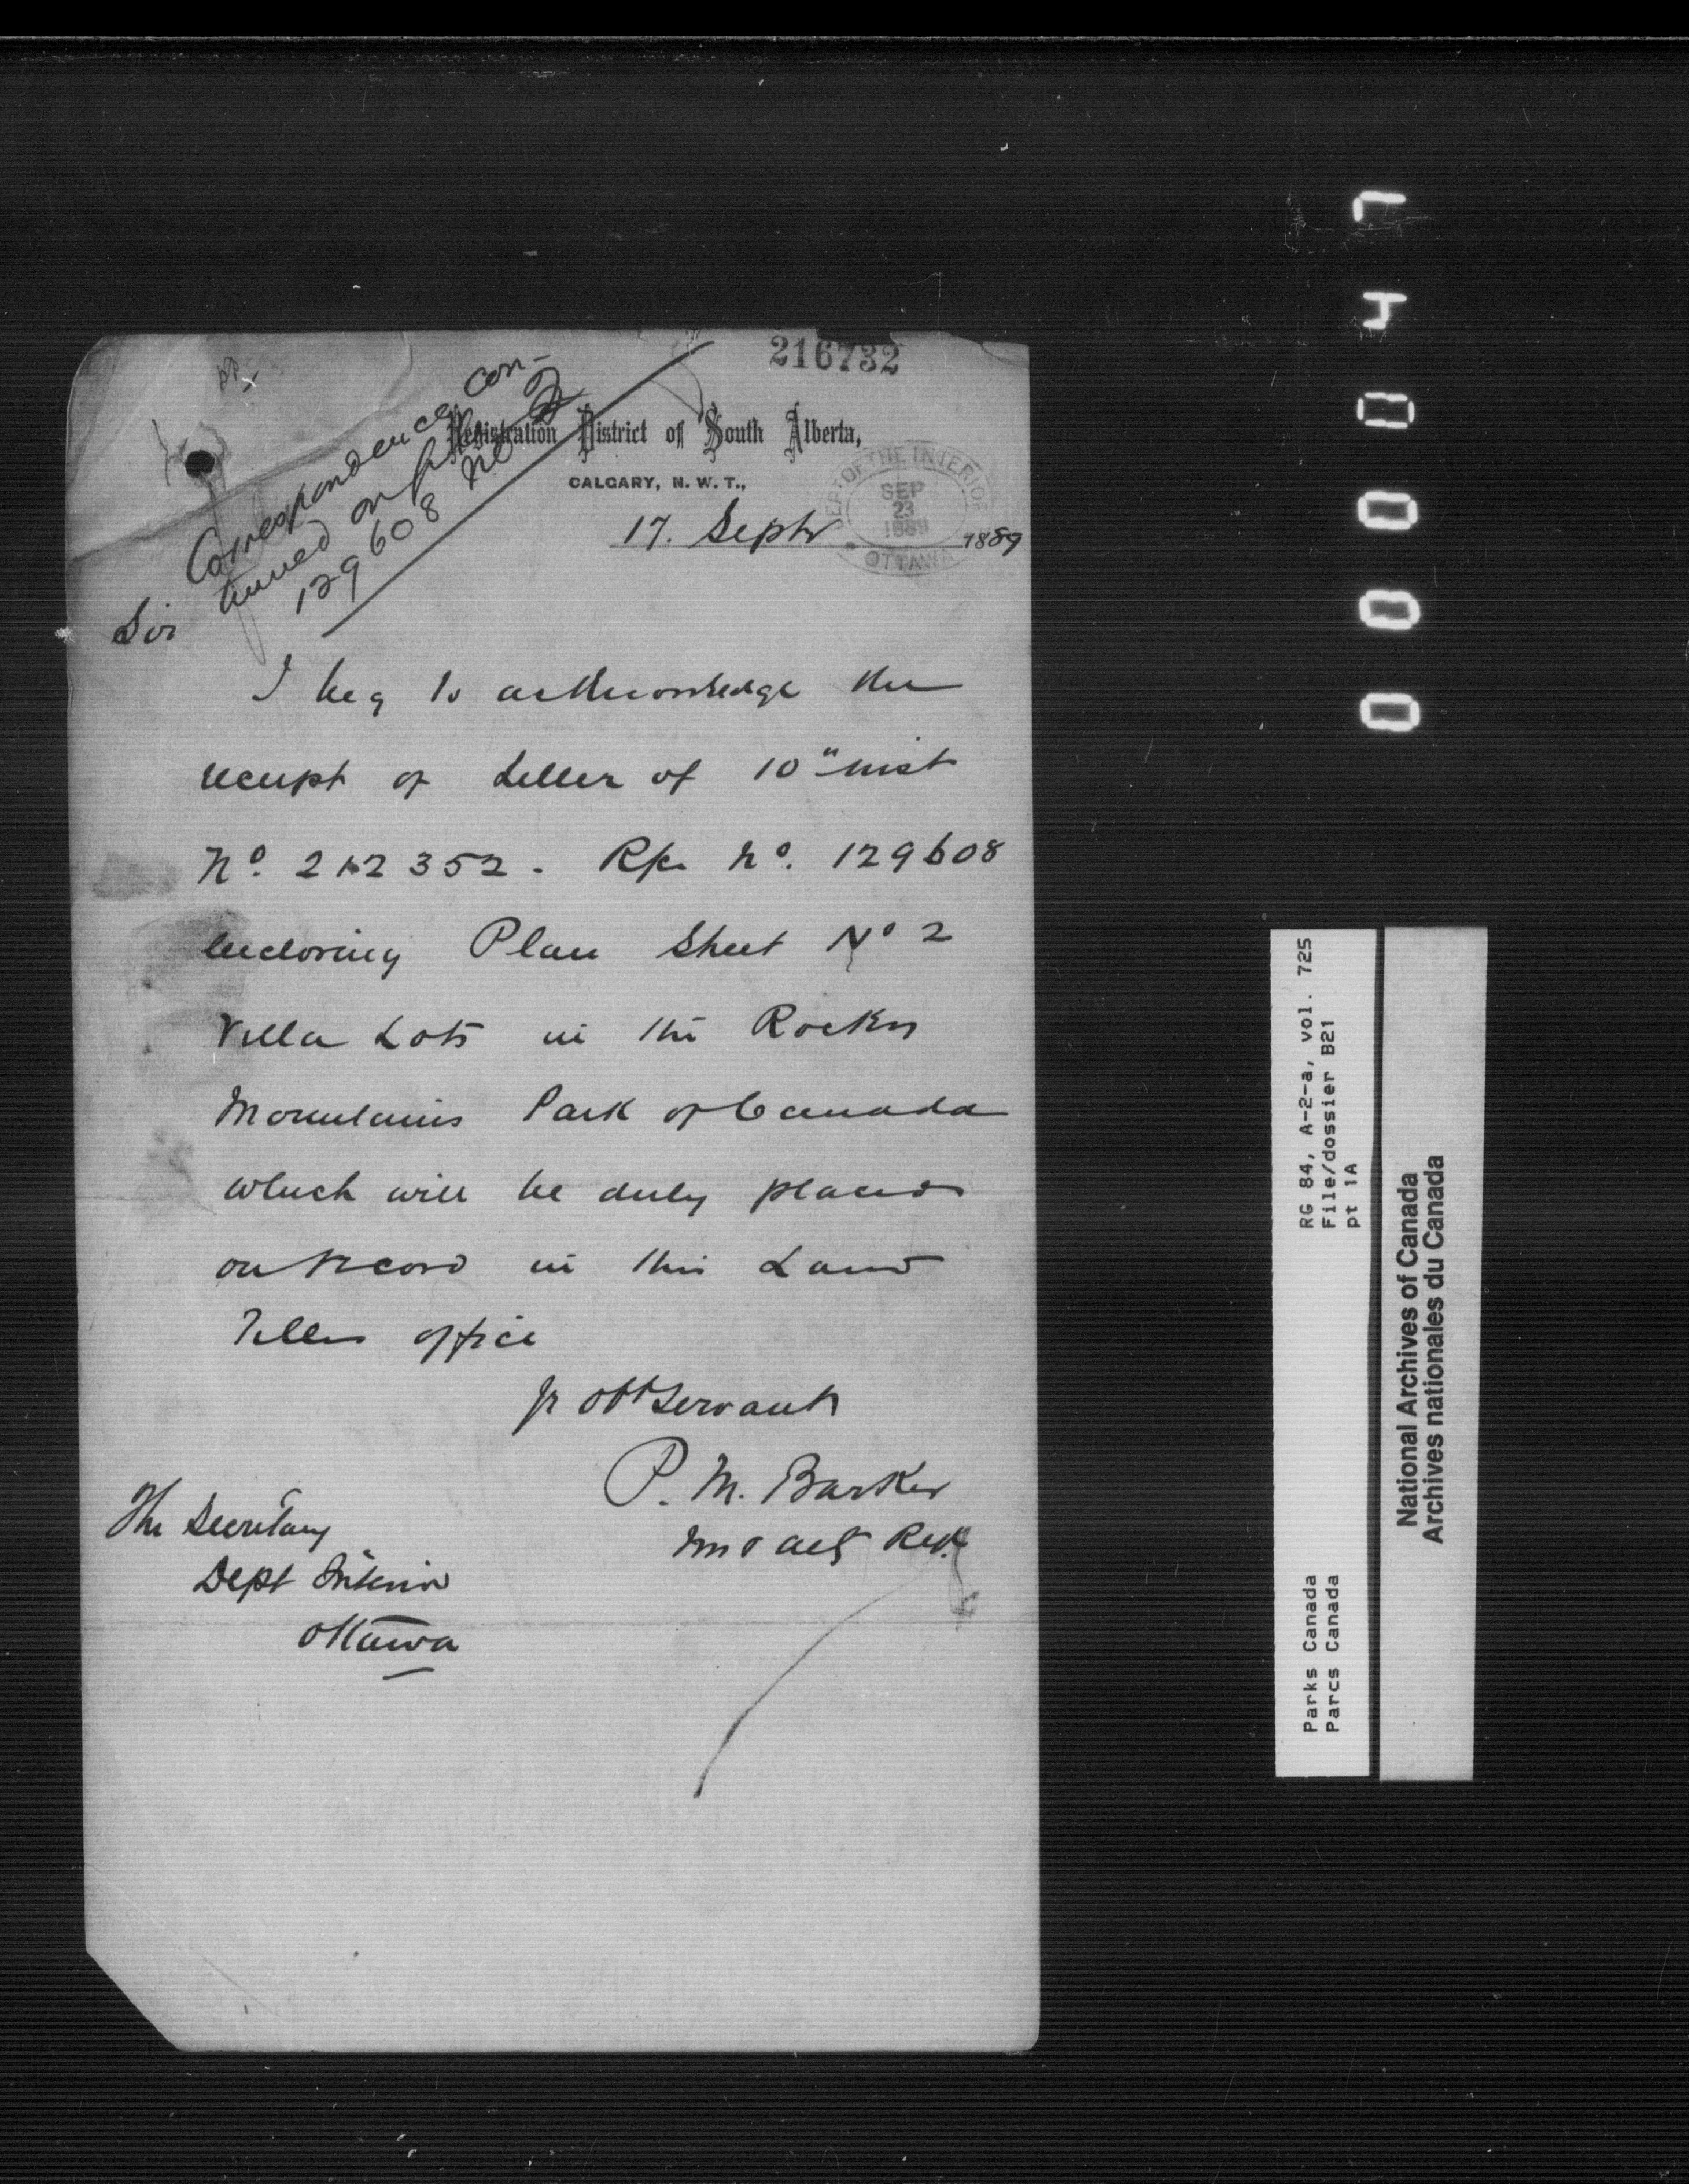 216732
Correspondence con-
tinued on file
129608 No 2
Registration District of South Alberta,
CALGARY, N. W. T.,
17. Septr 1889
DEPT OF THE INTERIOR
SEP
23
1889
OTTAWA
Sir
I beg to acknowledge the
receipt of Letter of 10" inst
No. 212352. Rfce No. 129608
enclosing Plan Sheet No 2
Villa Lots in the Rocky
Mountains Park of Canada
which will be duly placed
on record in this Land
Titles office
Yr obt Servant
P. M. Barker
The Secretary
Dept Interior
Ottawa
000047
RG 84, A-2-a, vol. 725
File/dossier B21
pt 1A
Parks Canada
Parcs Canada
National Archives of Canada
Archives nationales du Canada